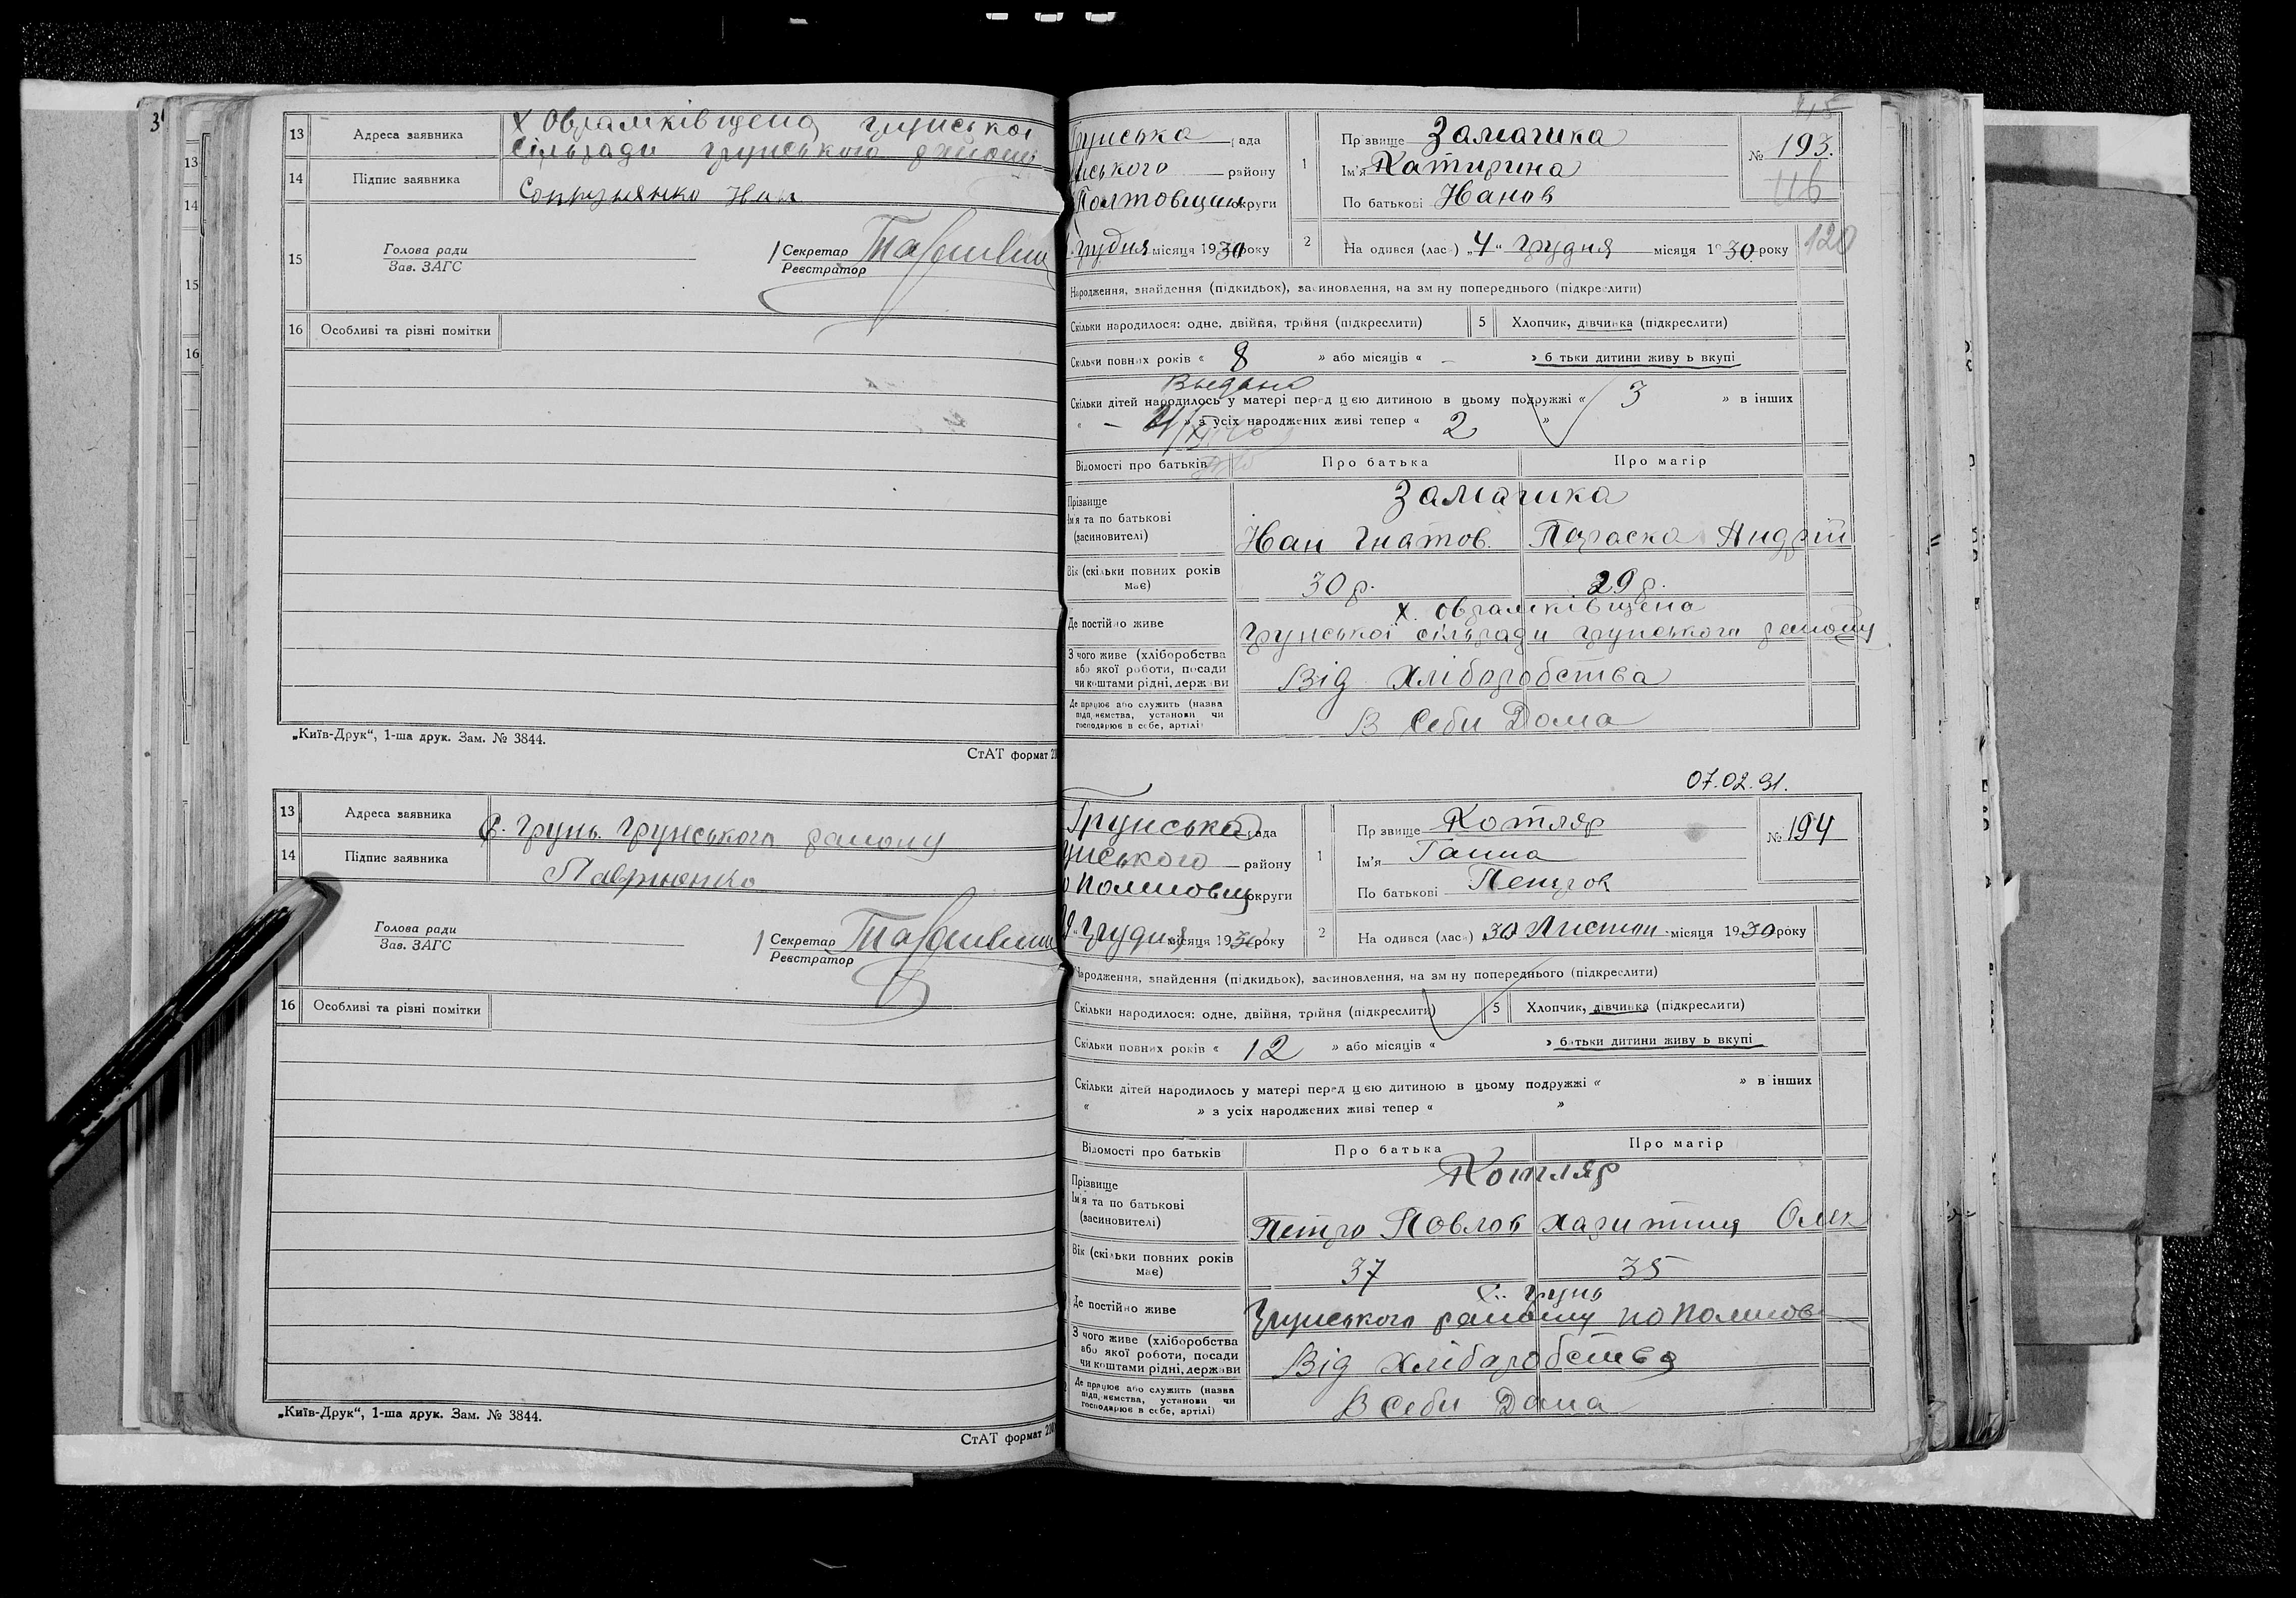 3
13
14
15
16
13 Адреса заявника х Обрамківщена грунської
сільради грунського району
14 Підпис заявника
15 Голова ради
Зав. ЗАГС
Секретар
Реєстратор
16 Особливі та різні помітки
„Київ-Друк“, 1-ша друк. Зам. № 3844.
СтАТ формат
13 Адреса заявника С. Грунь. Грунського району
14 Підпис заявника Лавриненко
Голова ради
Зав. ЗАГС
Секретар
Реєстратор
16 Особливі та різні помітки
„Київ-Друк“, 1-ша друк. Зам. № 3844.
СтАТ формат
Грунська рада
ського району
Полтовщини округи
Грудня місяця 1930 року
1 Прзвище Замашка
Ім'я Катирина
По батькові Иванов
№ 193.
116
120
2 На одився (лас ) „4“ Грудня місяця 1930 року
Народження, знайдення (підкидьок), засиновлення, на зм ну попереднього (підкреслити)
Скільки народилося: одне, двійня, трійня (підкреслити) 5 Хлопчик, дівчинка (підкреслити)
Скільки повних років « 8 » або місяців « – » б тьки дитини живу ь вкупі
Выдано
Скільки дітей народилось у матері перед цією дитиною в цьому подружжі « 3 » в інших
« – » з усіх народжених живі тепер « 2 »
Відомості про батьків Про батька Про матір
Прізвище
Ім'я та по батькові
(засиновителі)
Замашка
Иван Гнатов. Параска Андрій
Вік (скільки повних років
має) 30 р. 29 р.
Де постійно живе х. Обрамківщена
Грунської сільради грунського району
З чого живе (хліборобства
або якої роботи, посади
чи коштами рідні, держави
Від Хліборобства
Де працює або служить (назва
підп ємства, установи чи
господарює в себе, артілі)
В Себи Дома
07.02.91.
Грунська рада
унського району
округи
Грудня місяця 1930 року
1 Прзвище Котляр
Ім'я Ганна
По батькові Петров
№ 194
2 На одився (лас ) 30 Листоп місяця 1930 року
Народження, знайдення (підкидьок), засиновлення, на зм ну попереднього (підкреслити)
Скільки народилося: одне, двійня, трійня (підкреслити) 5 Хлопчик, дівчинка (підкреслити)
Скільки повних років « 12 » або місяців « » батьки дитини живу ь вкупі
Скільки дітей народилось у матері перед цією дитиною в цьому подружжі « » в інших
« » з усіх народжених живі тепер « »
Відомості про батьків Про батька Про матір
Прізвище
Ім'я та по батькові
(засиновителі)
Котляр
Петро Павлов Харитина Олек
Вік (скільки повних років
має) 37 35
Де постійно живе С. Грунь
Грунського району на Полтов
З чого живе (хліборобства
або якої роботи, посади
чи коштами рідні, держави
Від Хліборобства
Де працює або служить (назва
підп ємства, установи чи
господарює в себе, артілі)
В Себи Дома